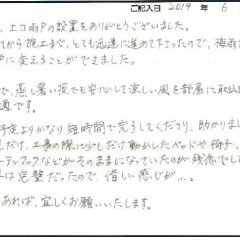 ご記入日 2019 年 6
、エコ雨戸の設置をありがとうございました。
てから施工まで、とても迅速に進めて下さったので、梅雨
戸に変えることができました。
で、蒸し暑い夜でも安心して涼しい風を部屋に取込
適です。
予定よりかなり短時間で完了してくださり、助かりまし
だけ、工事の際に少しだけ動かしたベッドや椅子、
ーテンフックなどがそのままになっていたのが残念でした
は完璧だったので、惜しい感じが...。
あれば、宜しくお願いいたします。